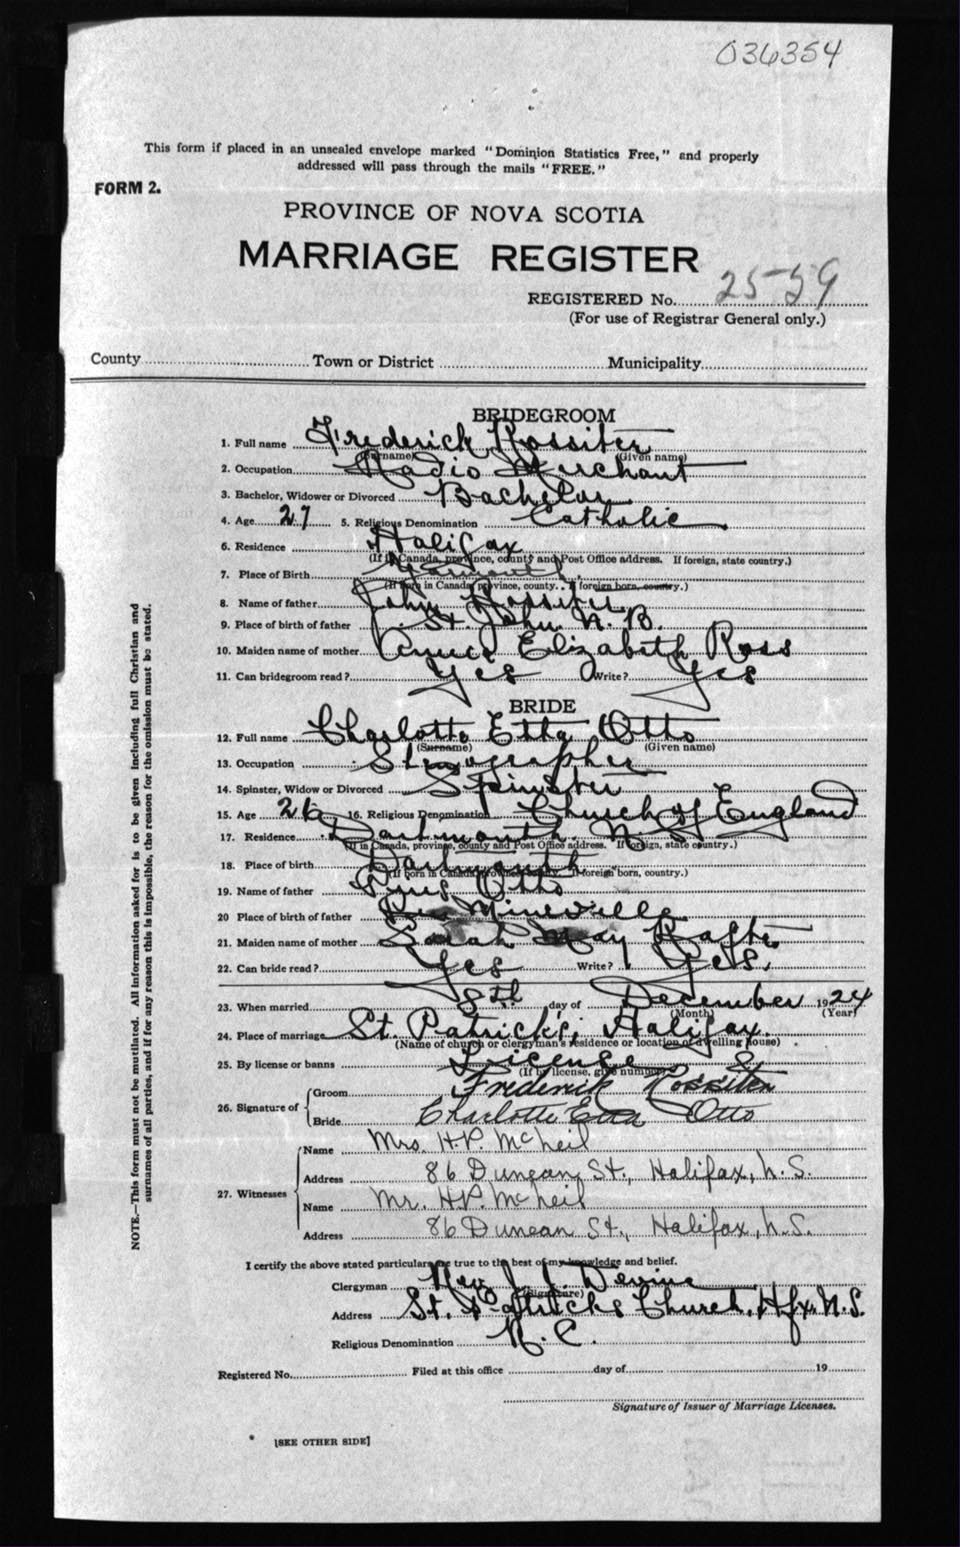 036354
This form if placed in an unsealed envelope marked "Dominion Statistics Free," and properly
addressed will pass through the mails "FREE."
FORM 2.
PROVINCE OF NOVA SCOTIA
MARRIAGE REGISTER
REGISTERED No. 2559
(For use of Registrar General only.)
County Town or District Municipality
BRIDEGROOM
1. Full name Frederick Rossiter
(Surname) (Given name)
2. Occupation Radio Merchant
3. Bachelor, Widower or Divorced Bachelor
4. Age 27 5. Religious Denomination Catholic
6. Residence Halifax
(If in Canada, province, county and Post Office address. If foreign, state country.)
7. Place of Birth
(If born in Canada, province, county. If foreign born, country.)
8. Name of father John Rossiter
9. Place of birth of father St. John N.B.
10. Maiden name of mother Annie Elizabeth Ross
11. Can bridegroom read? Yes Write? Yes
BRIDE
12. Full name Charlotte Etta Otto
(Surname) (Given name)
13. Occupation Stenographer
14. Spinster, Widow or Divorced Spinster
15. Age 26 16. Religious Denomination Church of England
17. Residence Dartmouth N.S.
(If in Canada, province, county and Post Office address. If foreign, state country.)
18. Place of birth Dartmouth
(If born in Canada, province, county. If foreign born, country.)
19. Name of father Otto
20 Place of birth of father Mineville
21. Maiden name of mother Sarah May
22. Can bride read? Yes Write? Yes.
23. When married 8th day of December 1924
(Month) (Year)
24. Place of marriage St. Patrick's, Halifax.
(Name of church or clergyman's residence or location of dwelling house)
25. By license or banns License
(If by license, give number)
26. Signature of Groom Frederick Rossiter
Bride Charlotte Etta Otto
27. Witnesses Name Mrs. H.P. McNeil
Address 86 Duncan St., Halifax, N.S.
Name Mr. H.P. McNeil
Address 86 Duncan St., Halifax, N.S.
I certify the above stated particulars are true to the best of my knowledge and belief.
Clergyman Rev J. J. Devine
(Signature)
Address St. Patricks Church, Hfx. N.S.
Religious Denomination R.C.
Registered No. Filed at this office day of 19
Signature of Issuer of Marriage Licenses.
[SEE OTHER SIDE]
NOTE.—This form must not be mutilated. All information asked for is to be given including full Christian and
surnames of all parties, and if for any reason this is impossible, the reason for the omission must be stated.